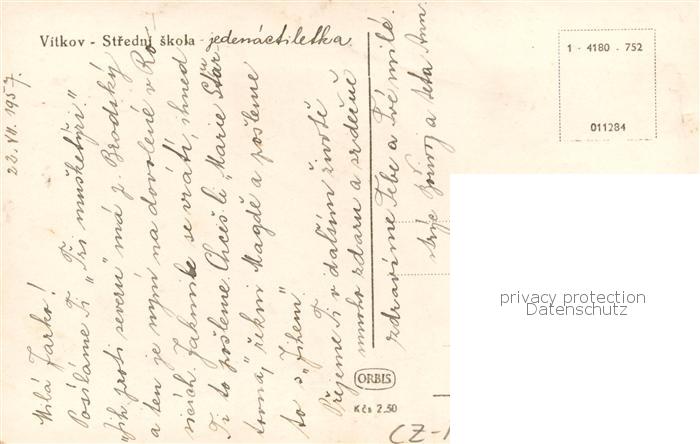 Vítkov - Střední škola - jedenáctiletka
22. VII. 1957.
Milá Jarko!
Posíláme Ti „Tři mušketýři."
„Jih proti severu" má p. Brodský
a ten je nyní na dovolené v Ro-
sicích. Jakmile se vrátí, ihned
Ti to pošleme. Chceš-li „Marie Stuar-
tovna", řekni Magdě a pošleme
to s „Jihem".
Přejeme Ti v dalším životě
mnoho zdaru a srdečně
zdravíme Tebe a Tvé milé.
strýc a teta Anna.
1 - 4180 - 752
011284
ORBIS
Kčs 2.50
CZ-
privacy protection
Datenschutz